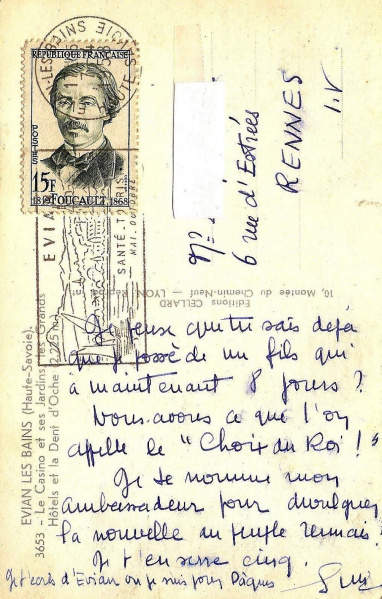 EVIAN LES BAINS
REPUBLIQUE FRANÇAISE
POSTES
15F
1819 FOUCAULT 1868
EVIAN
SANTÉ
MAI-OCTOBRE
6 rue d'Estrées
RENNES
I.V
10, Montée du Chemin-Neuf — LYON
Editions CELLARD
EVIAN LES BAINS (Haute-Savoie).
3653 - Le Casino et ses Jardins, les Grands
Hôtels et la Dent d'Oche 2.225 m
Je pense que tu sais déjà
que je possède un fils qui
a maintenant 8 jours ?
Nous avons ce que l'on
appelle le "Choix du Roi !"
Je te nomme mon
ambassadeur pour divulguer
la nouvelle au peuple rennais !
Je t'en serre cinq.
Je t'écris d'Evian où je suis pour Pâques